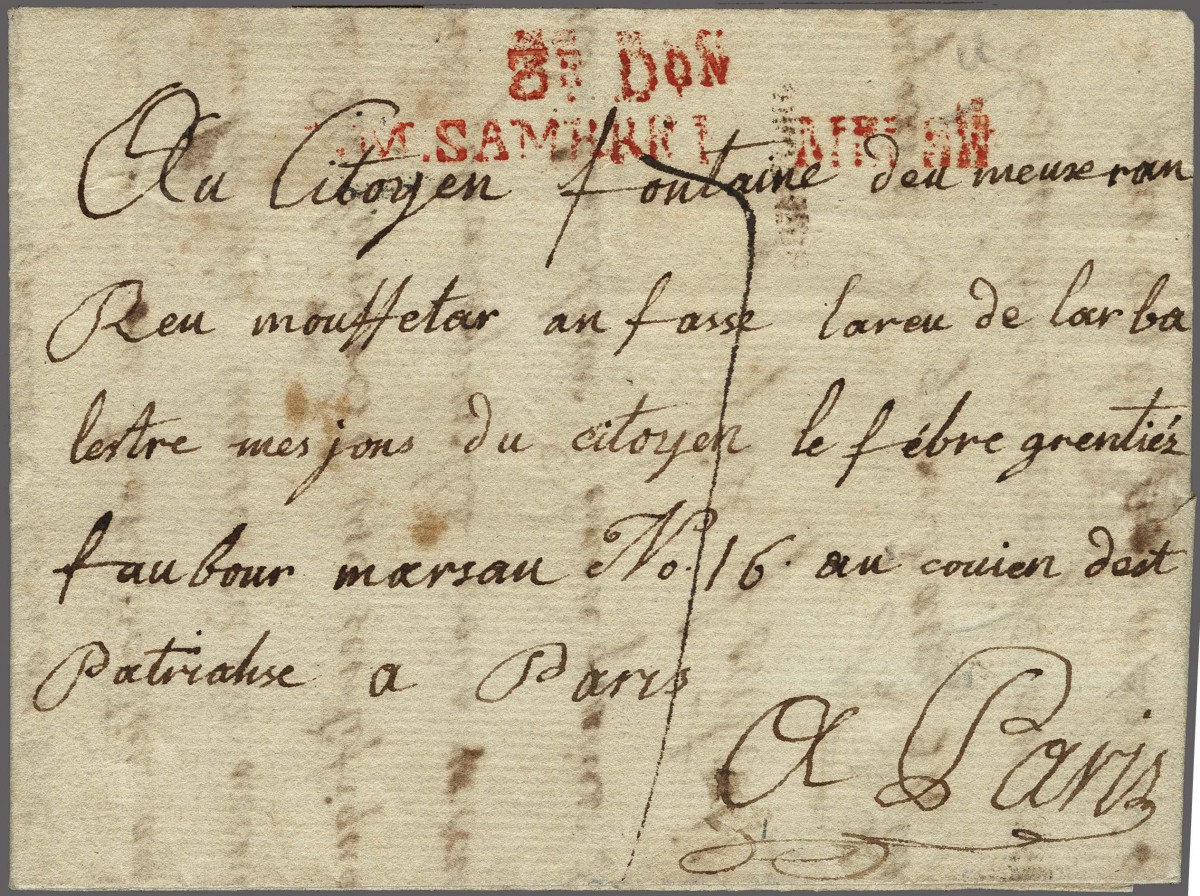 8E DON
M. SAMBRE
Au Citoyen fontaine deu meuxeran
Reu mouffetar an fasse lareu de larba
lestre mesjons du citoyen le fébre grentiéz
faubour marsau No. 16. au couien dest
Patriahse a Paris
A Paris